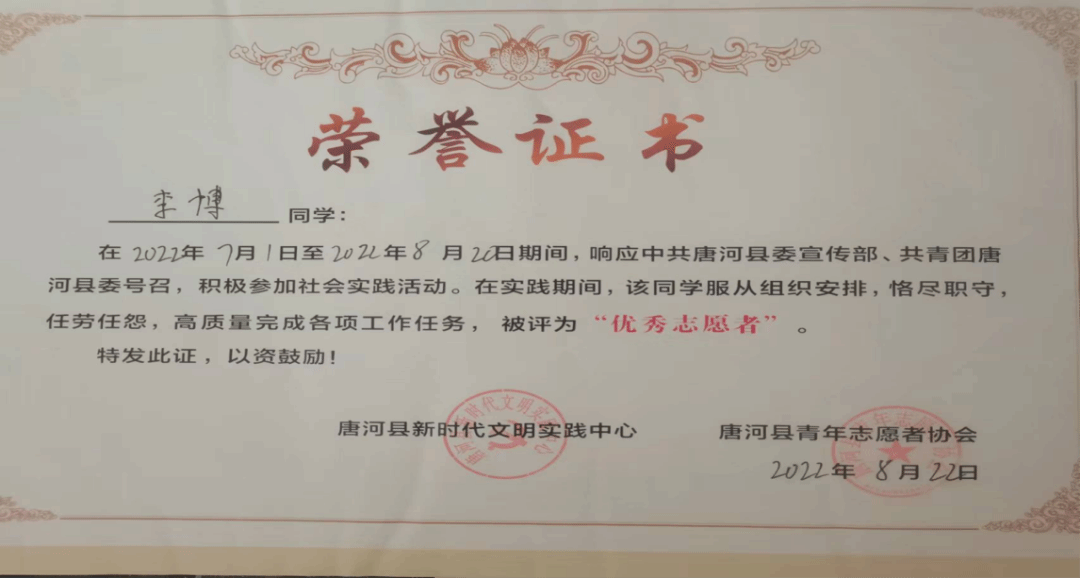 荣誉证书
李博 同学：
在 2022年 7月1日至2022年8月20日期间，响应中共唐河县委宣传部、共青团唐
河县委号召，积极参加社会实践活动。在实践期间，该同学服从组织安排，恪尽职守，
任劳任怨，高质量完成各项工作任务，被评为“优秀志愿者”。
特发此证，以资鼓励！
唐河县新时代文明实践中心
唐河县青年志愿者协会
2022年8月22日